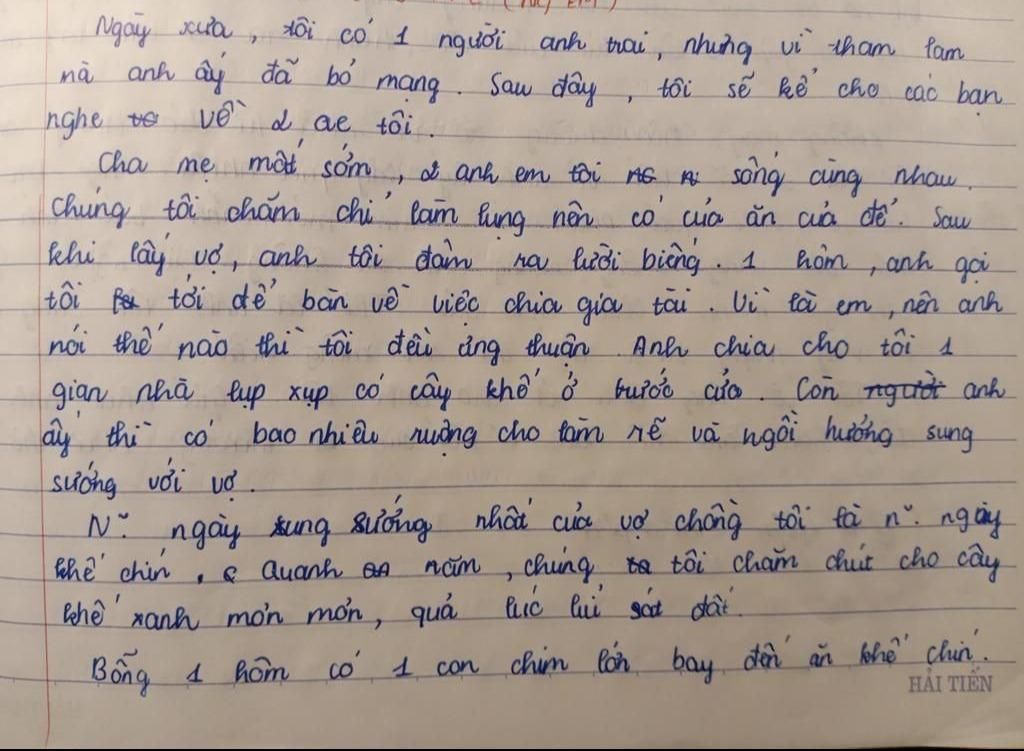 Ngày xưa, tôi có 1 người anh trai, nhưng vì tham lam
mà anh ấy đã bỏ mạng. Sau đây, tôi sẽ kể cho các bạn
nghe về 2 ae tôi.
Cha mẹ mất sớm, 2 anh em tôi sống cùng nhau.
Chúng tôi chăm chỉ làm lụng nên có của ăn của để. Sau
khi lấy vợ, anh tôi đâm ra lười biếng. 1 hôm, anh gọi
tôi tới để bàn về việc chia gia tài. Vì là em, nên anh
nói thế nào thì tôi đều ưng thuận. Anh chia cho tôi 1
gian nhà lụp xụp có cây khế ở trước cửa. Còn người anh
ấy thì có bao nhiêu ruộng cho làm rẽ và ngồi hưởng sung
sướng với vợ.
N~. ngày sung sướng nhất của vợ chồng tôi là n~. ngày
khế chín. Quanh năm, chúng tôi chăm chút cho cây
khế xanh mơn mởn, quả lúc lỉu sát đất.
Bỗng 1 hôm có 1 con chim lớn bay đến ăn khế chín.
HẢI TIẾN